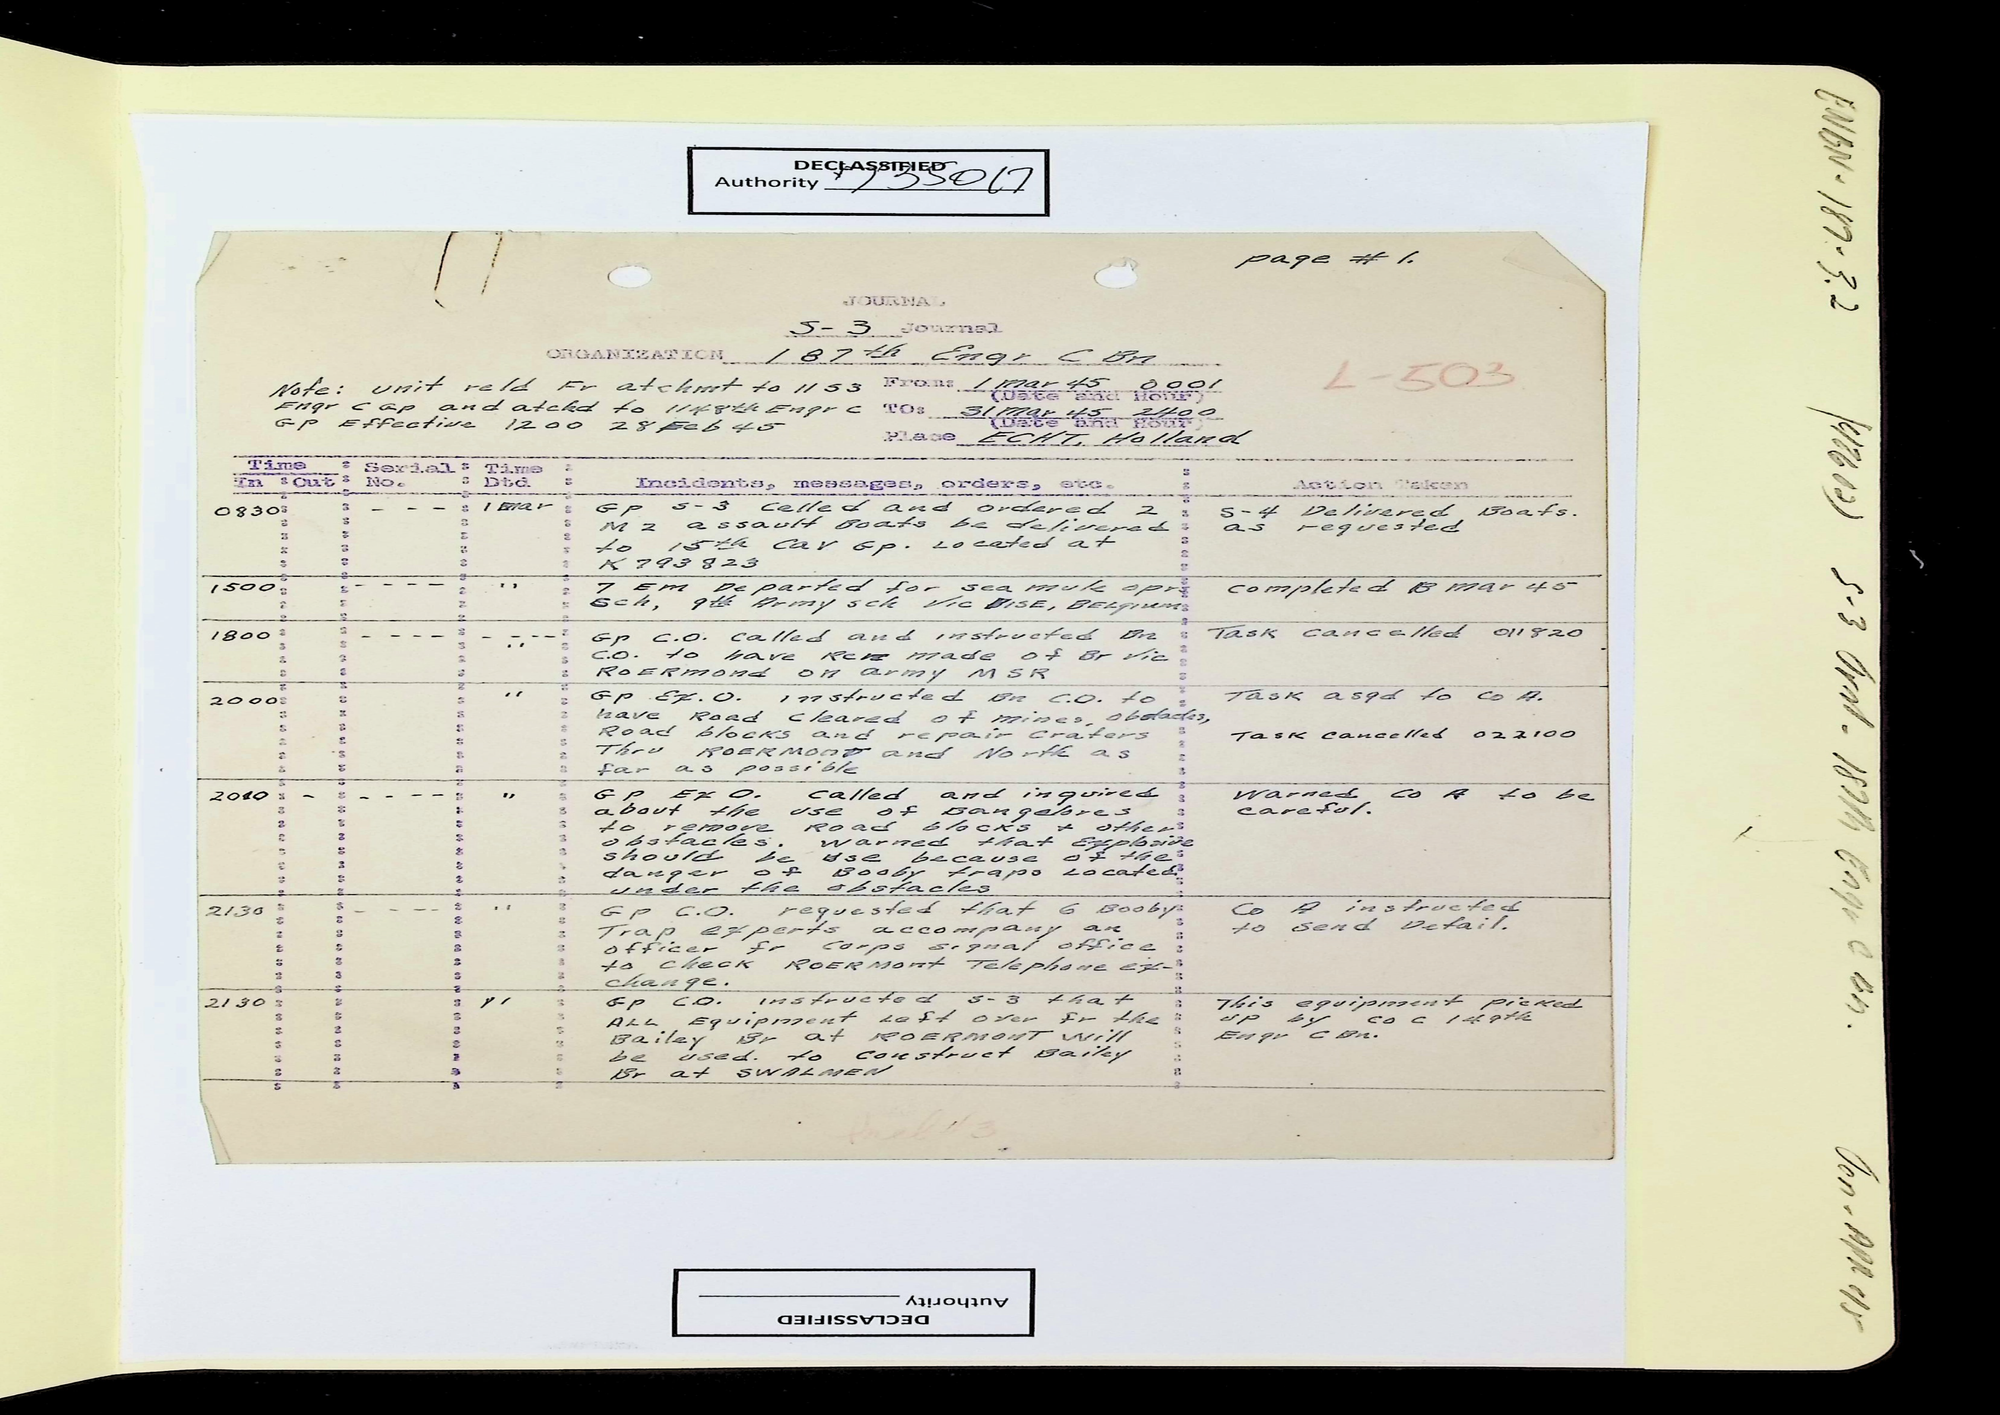 DECLASSIFIED
Authority 735017
page # 1.
JOURNAL
S-3 Journal
ORGANIZATION 187th Engr C Bn
Note: unit reld Fr atchmt to 1153
Engr C Gp and atchd to 1148th Engr C
GP Effective 1200 28 Feb 45
From: 1 Mar 45 0001
(Date and Hour)
TO: 31 Mar 45 2400
(Date and Hour)
Place ECHT, Holland
L-503
Time Serial Time
In Out No. Dtd Incidents, messages, orders, etc. Action Taken
0830 - - - 1 Mar Gp S-3 Called and ordered 2 S-4 Delivered Boats.
M2 assault Boats be delivered as requested
to 15th Cav Gp. Located at
K793823
1500 - - - - " 7 Em Departed for sea mule opr Completed 13 Mar 45
Sch, 9th Army sch Vic VISE, BElgium
1800 - - - - - - - - " Gp C.O. Called and instructed Bn Task cancelled 011820
C.O. to have Rcn made of Br Vic
ROERmond on army MSR
2000 " GP Ex.O. instructed Bn C.O. to Task asgd to Co A.
have Road Cleared of mines, obstacles,
Road blocks and repair Craters Task cancelled 022100
Thru ROERMONT and North as
far as possible
2010 - - - - - " GP Ex O. Called and inquired Warned Co A to be
about the use of Bangelores careful.
to remove Road blocks + other
obstacles. Warned that Explosive
should be use because of the
danger of Booby traps Located
under the obstacles
2130 - - - - " Gp C.O. requested that 6 Booby Co A instructed
Trap experts accompany an to send Detail.
officer fr Corps signal office
to Check ROERMONT Telephone ex-
change.
2130 " Gp C.O. instructed S-3 that This equipment picked
ALL Equipment Left over fr the up by Co C 149th
Bailey Br at ROERMONT Will Engr C Bn.
be used. to Construct Bailey
Br at SWALMEN
DECLASSIFIED
Authority
ENBN-187-3.2
S-3 Jrnl - 187th Engr C Bn.
Jan-Apr 45